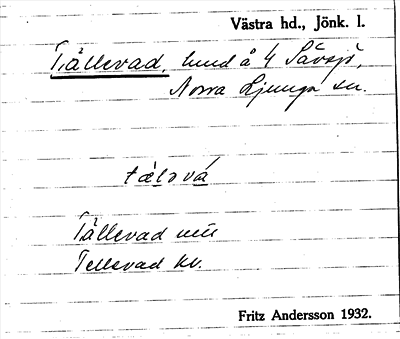 Västra hd., Jönk. l.
Tällevad, hmd å ¼ Sävsjö,
Norra Ljunga sn.
tæ̀lǝvá
Tällevad
Tellevad kv.
Fritz Andersson 1932.